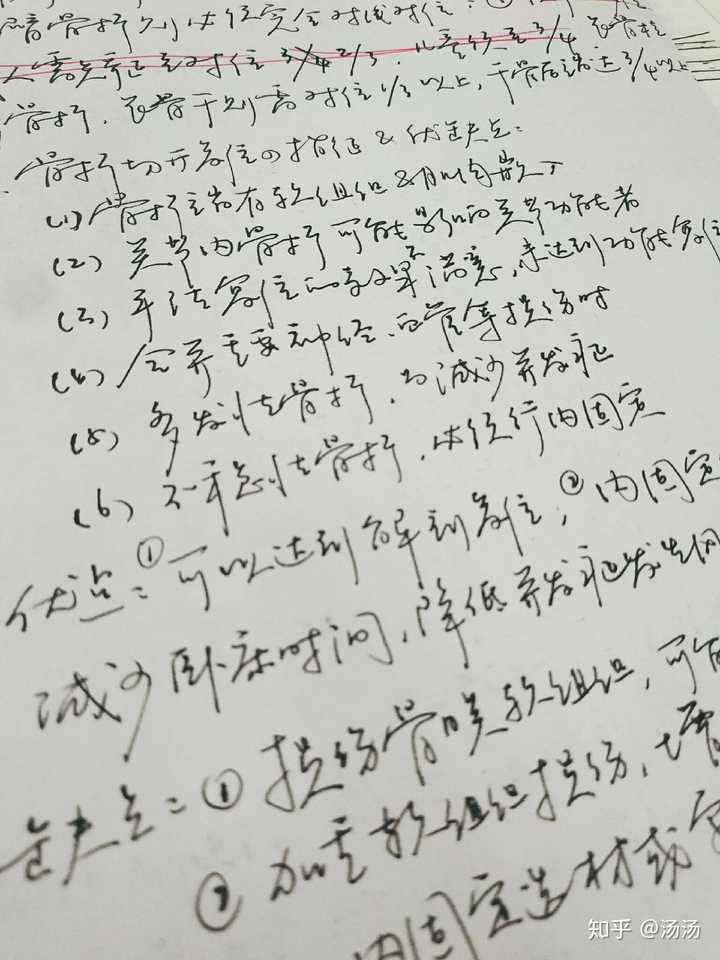 臂骨折则必须完全对线对位:①
3/4 2/3,儿童须至3/4 长骨
骨折,长骨干则需对位1/3以上,干骺端达3/4以上
骨折切开复位の指征&优缺点:
(1) 骨折端有软组织&肌肉嵌入
(2) 关节内骨折可能影响关节功能者
(3) 手法复位の效果不满意,未达到功能复位
(4) 合并重要神经、血管等损伤时
(5) 多发性骨折,为减少并发症
(6) 不稳定性骨折,必须行内固定
优点:①可以达到解剖复位;②内固定
减少卧床时间,降低并发症发生
缺点:①损伤骨膜软组织,可能
②加重软组织损伤,增
内固定选材或
知乎 @汤汤